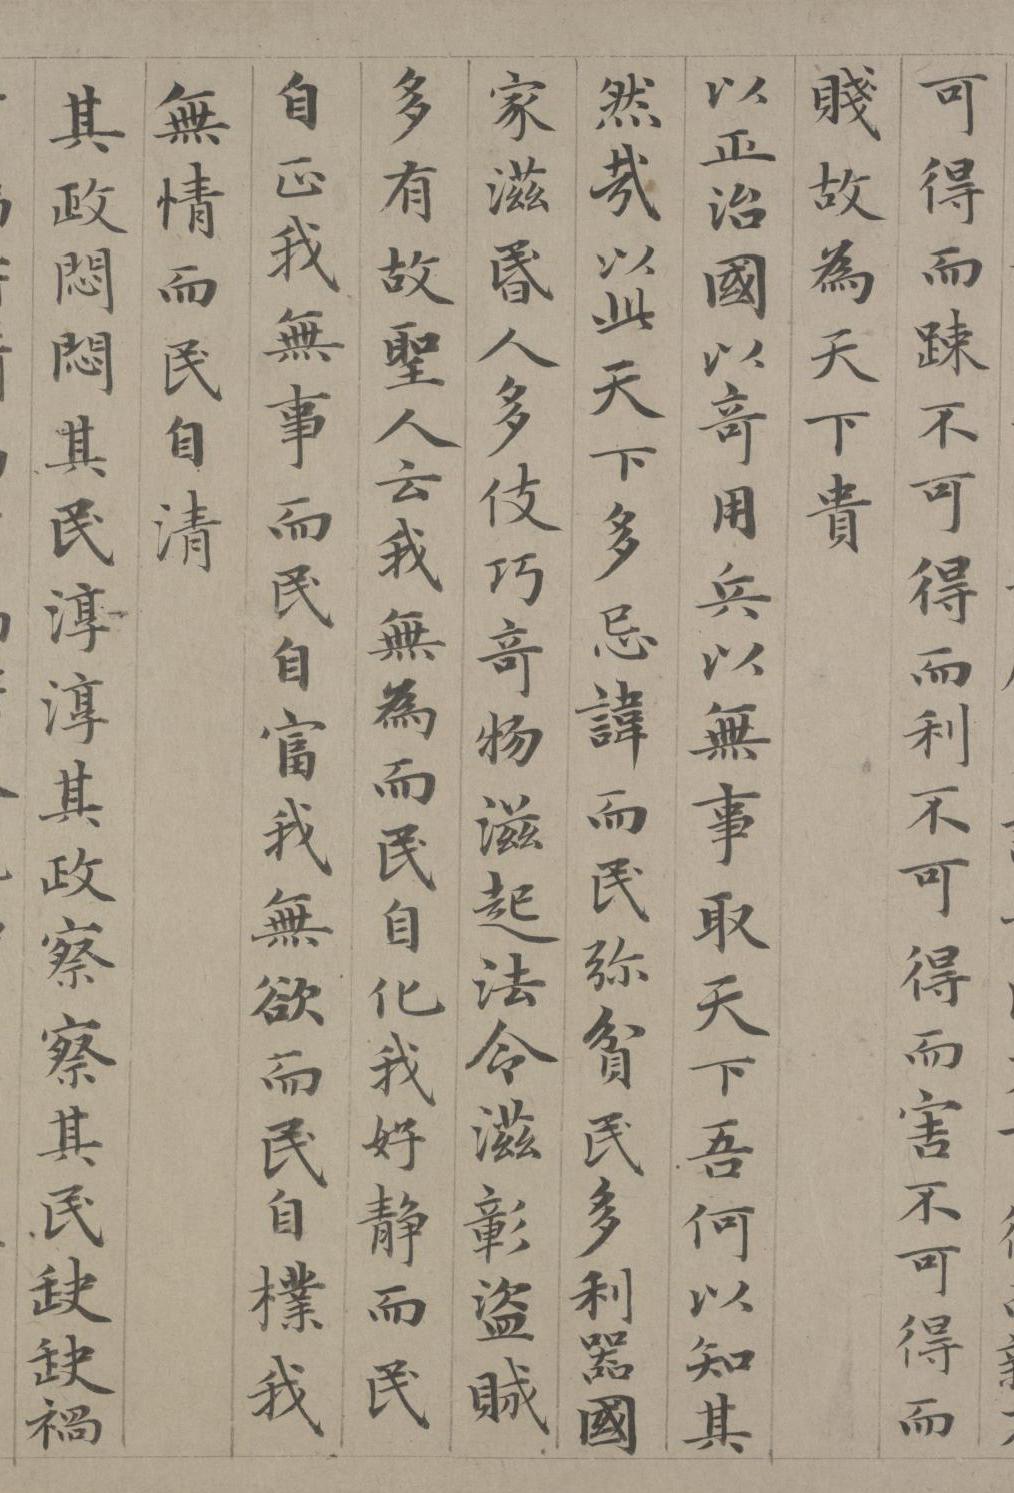 可得而踈不可得而利不可得而害不可得而
賤故為天下貴
以正治國以奇用兵以無事取天下吾何以知其
然哉以此天下多忌諱而民弥貧民多利器國
家滋昬人多伎巧奇物滋起法令滋彰盜賊
多有故聖人云我無為而民自化我好静而民
自正我無事而民自富我無欲而民自樸我
無情而民自清
其政悶悶其民淳淳其政察察其民缺缺禍